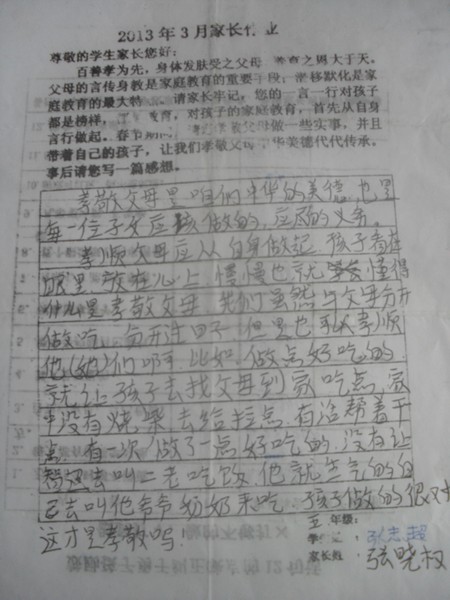 2013年3月家长作业
尊敬的学生家长您好：
百善孝为先，身体发肤受之父母，养育之恩大于天。
父母的言传身教是家庭教育的重要手段；潜移默化是家
庭教育的最大特 请家长牢记，您的一言一行对孩子
都是榜样， 教育，对孩子的家庭教育，首先从自身
言行做起。春节期间， 敬父母做一些实事，并且
带着自己的孩子，让我们孝敬父母 中华美德代代传承。
事后请您写一篇感想。
孝敬父母是咱们中华的美德，也是
每一位子女应该做的，应尽的义务。
孝顺父母应从自身做起，孩子看在
眼里，放在心上，慢慢也就 懂得
什么是孝敬父母。我们虽然与父母分开
做吃，分开连田子，但是也 孝顺
他(她)们啊，比如，做点好吃的，
就让孩子去找父母到家吃点，家
中没有烧柴，去给拉点，有活帮着干
点，有一次，做了一点好吃的，没有让
去叫二老吃饭，他就生气的自
己去叫他爷爷奶奶来吃，孩子做的很对
这才是孝敬吗！
年级：
学
家长姓：
张志超
张晓权